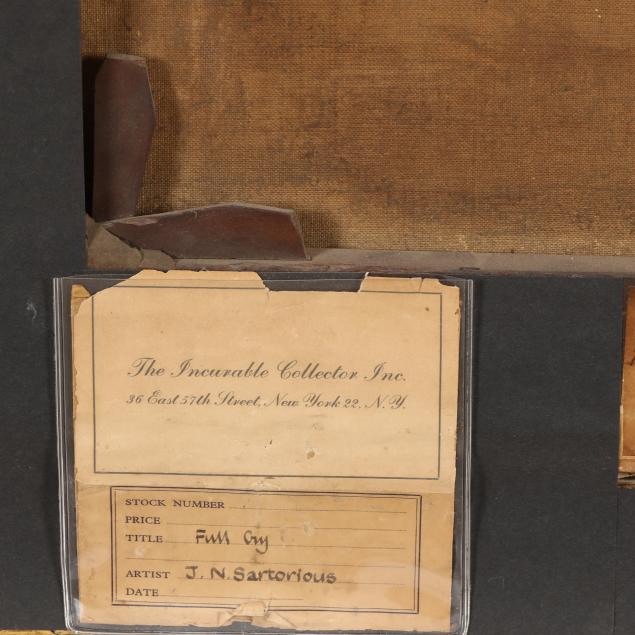 The Incurable Collector Inc.
36 East 57th Street, New York 22, N.Y.
STOCK NUMBER
PRICE
TITLE Full Cry
ARTIST J. N. Sartorious
DATE